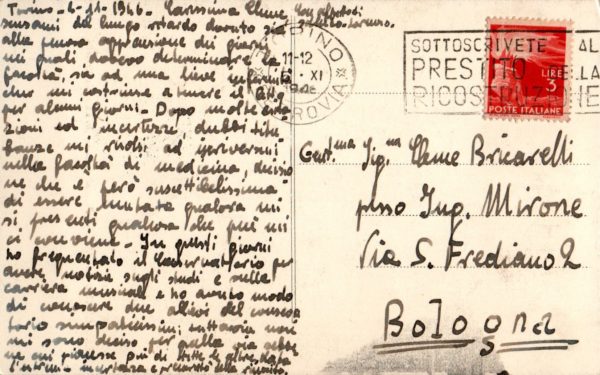 Torino - 6-11-1946 - Carissima Cleme
scusami del lungo ritardo dovuto sia
alla penosa apprensione dei giorni
nei quali dovevo determinare la
facoltà, sia ad una lieve
che mi costrinse a tenere il letto
per alcuni giorni. Dopo molte
zioni ed incertezze dubbi titu
banze mi risolsi ad iscrivermi
nella facoltà di medicina, decisio
ne che è però suscettibilissima
di essere mutata qualora mi
si presenti qualcosa che più mi
ci conviene - In questi giorni
ho frequentato il Conservatorio per
avere notizie sugli studi e sulla
carriera musicale e ho avuto modo
di conoscere due allievi del conserva
torio simpaticissimi; tuttavia non
mi sono deciso per quella via sebbe
ne mi piacesse più di tutte le altre, data
incertezza e precarietà della riuscita.
TORINO
11-12
XI
1946
FERROVIA
SOTTOSCRIVETE AL
PRESTITO DELLA
RICOSTRUZIONE
LIRE 3
POSTE ITALIANE
Gent.ma Sig.na Cleme Bricarelli
presso Ing. Mirone
Via S. Frediano 2
Bologna